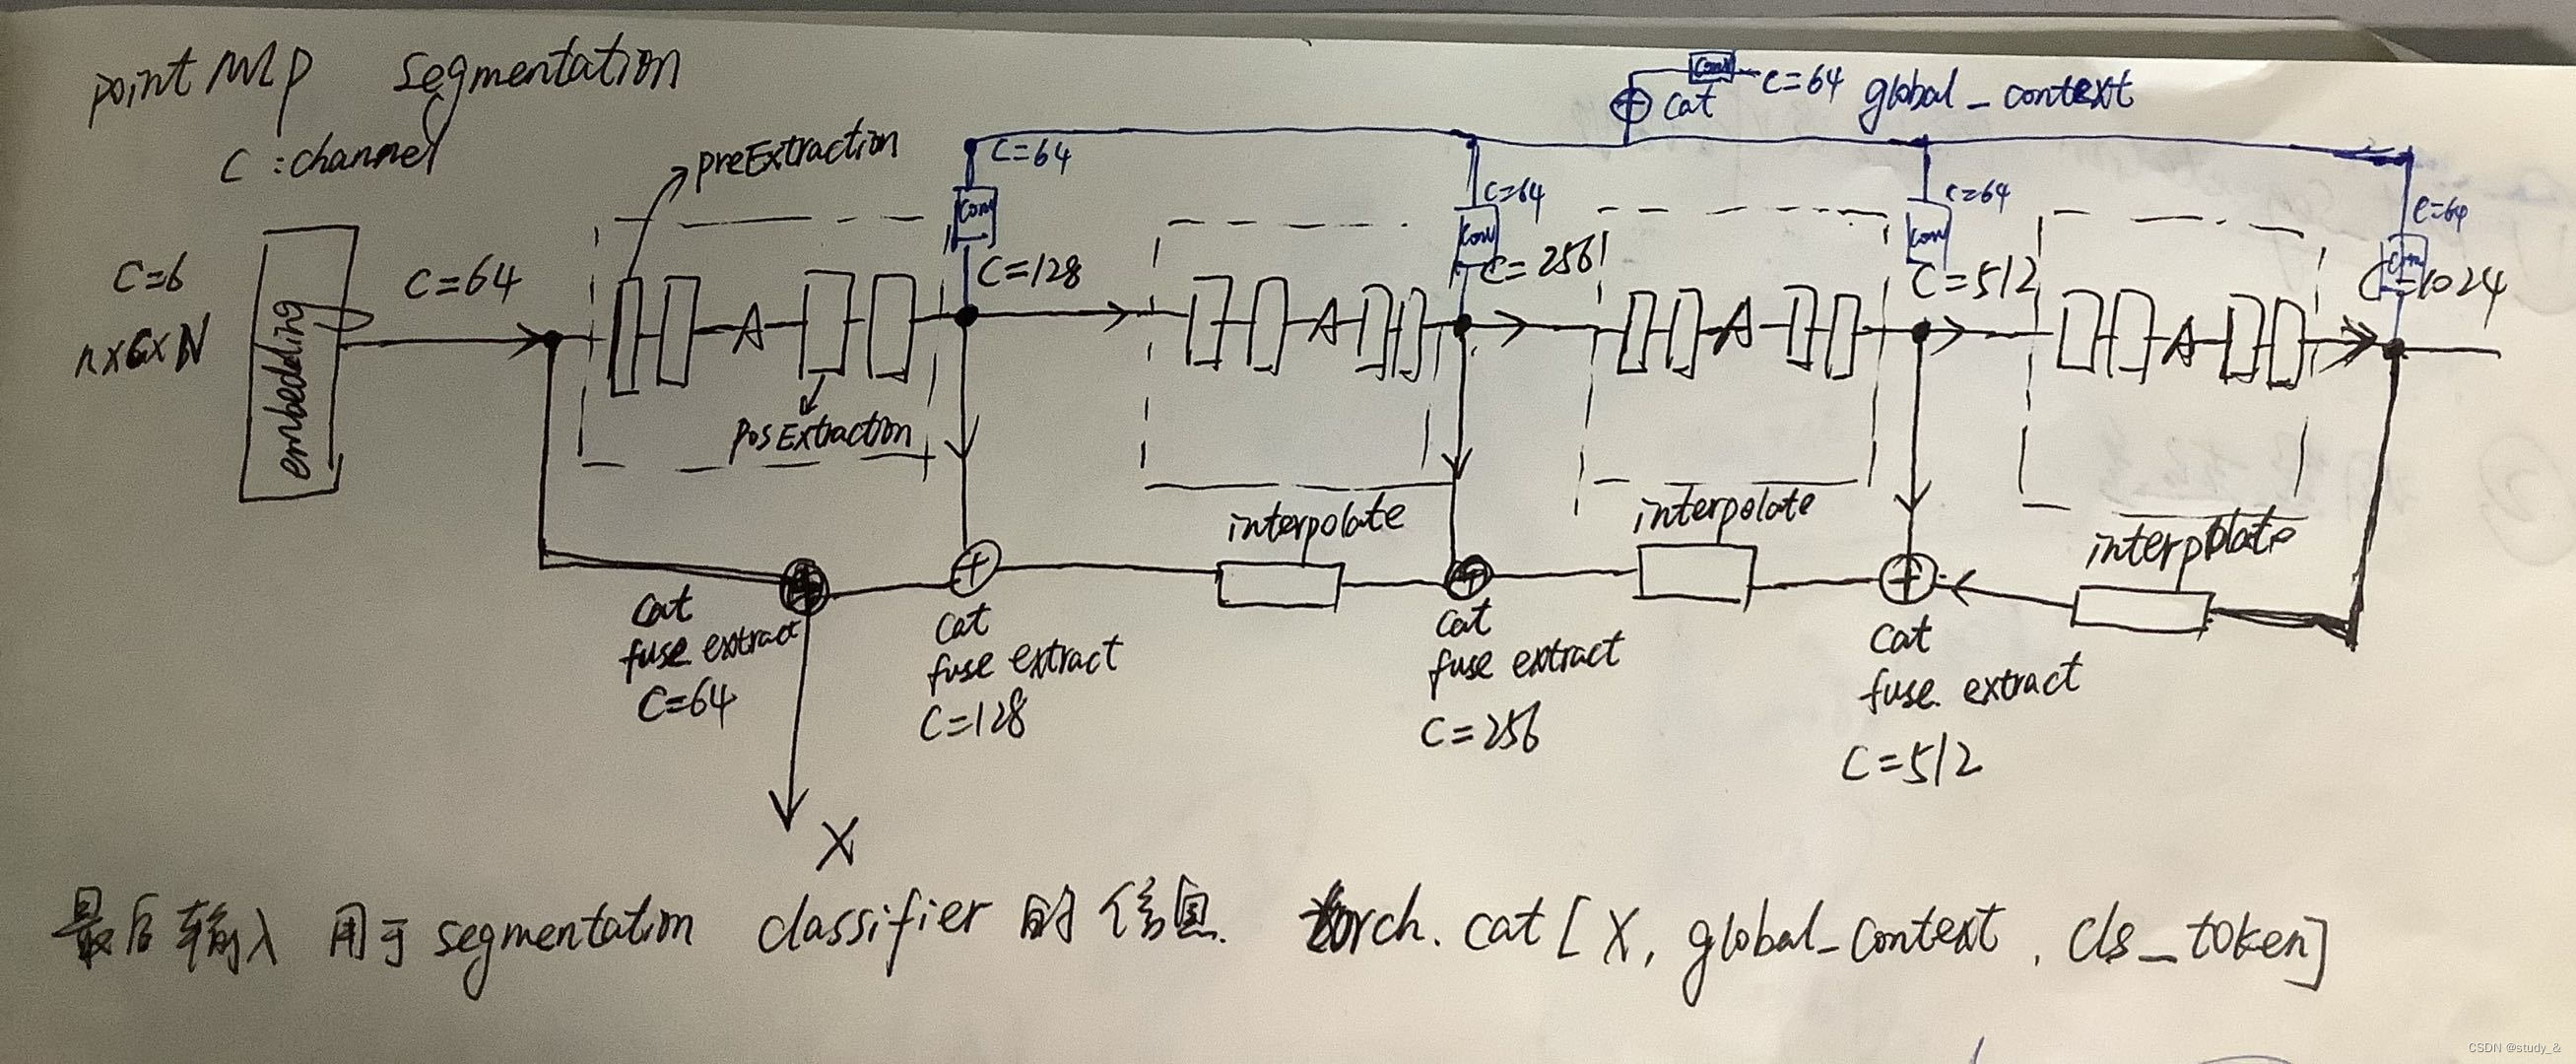 pointMLP segmentation
C : channel
preExtraction
conv
C=64
cat
global_context
C=64
C=64
C=64
C=64
conv
conv
conv
conv
C=6
n×6×N
embedding
C=64
A
posExtraction
C=128
A
C=256
A
C=512
A
C=1024
interpolate
interpolate
interpolate
cat
fuse extract
C=64
cat
fuse extract
C=128
cat
fuse extract
C=256
cat
fuse extract
C=512
X
最后输入 用于 segmentation classifier 的信息. torch.cat[X, global_context, cls_token]
CSDN @study_&